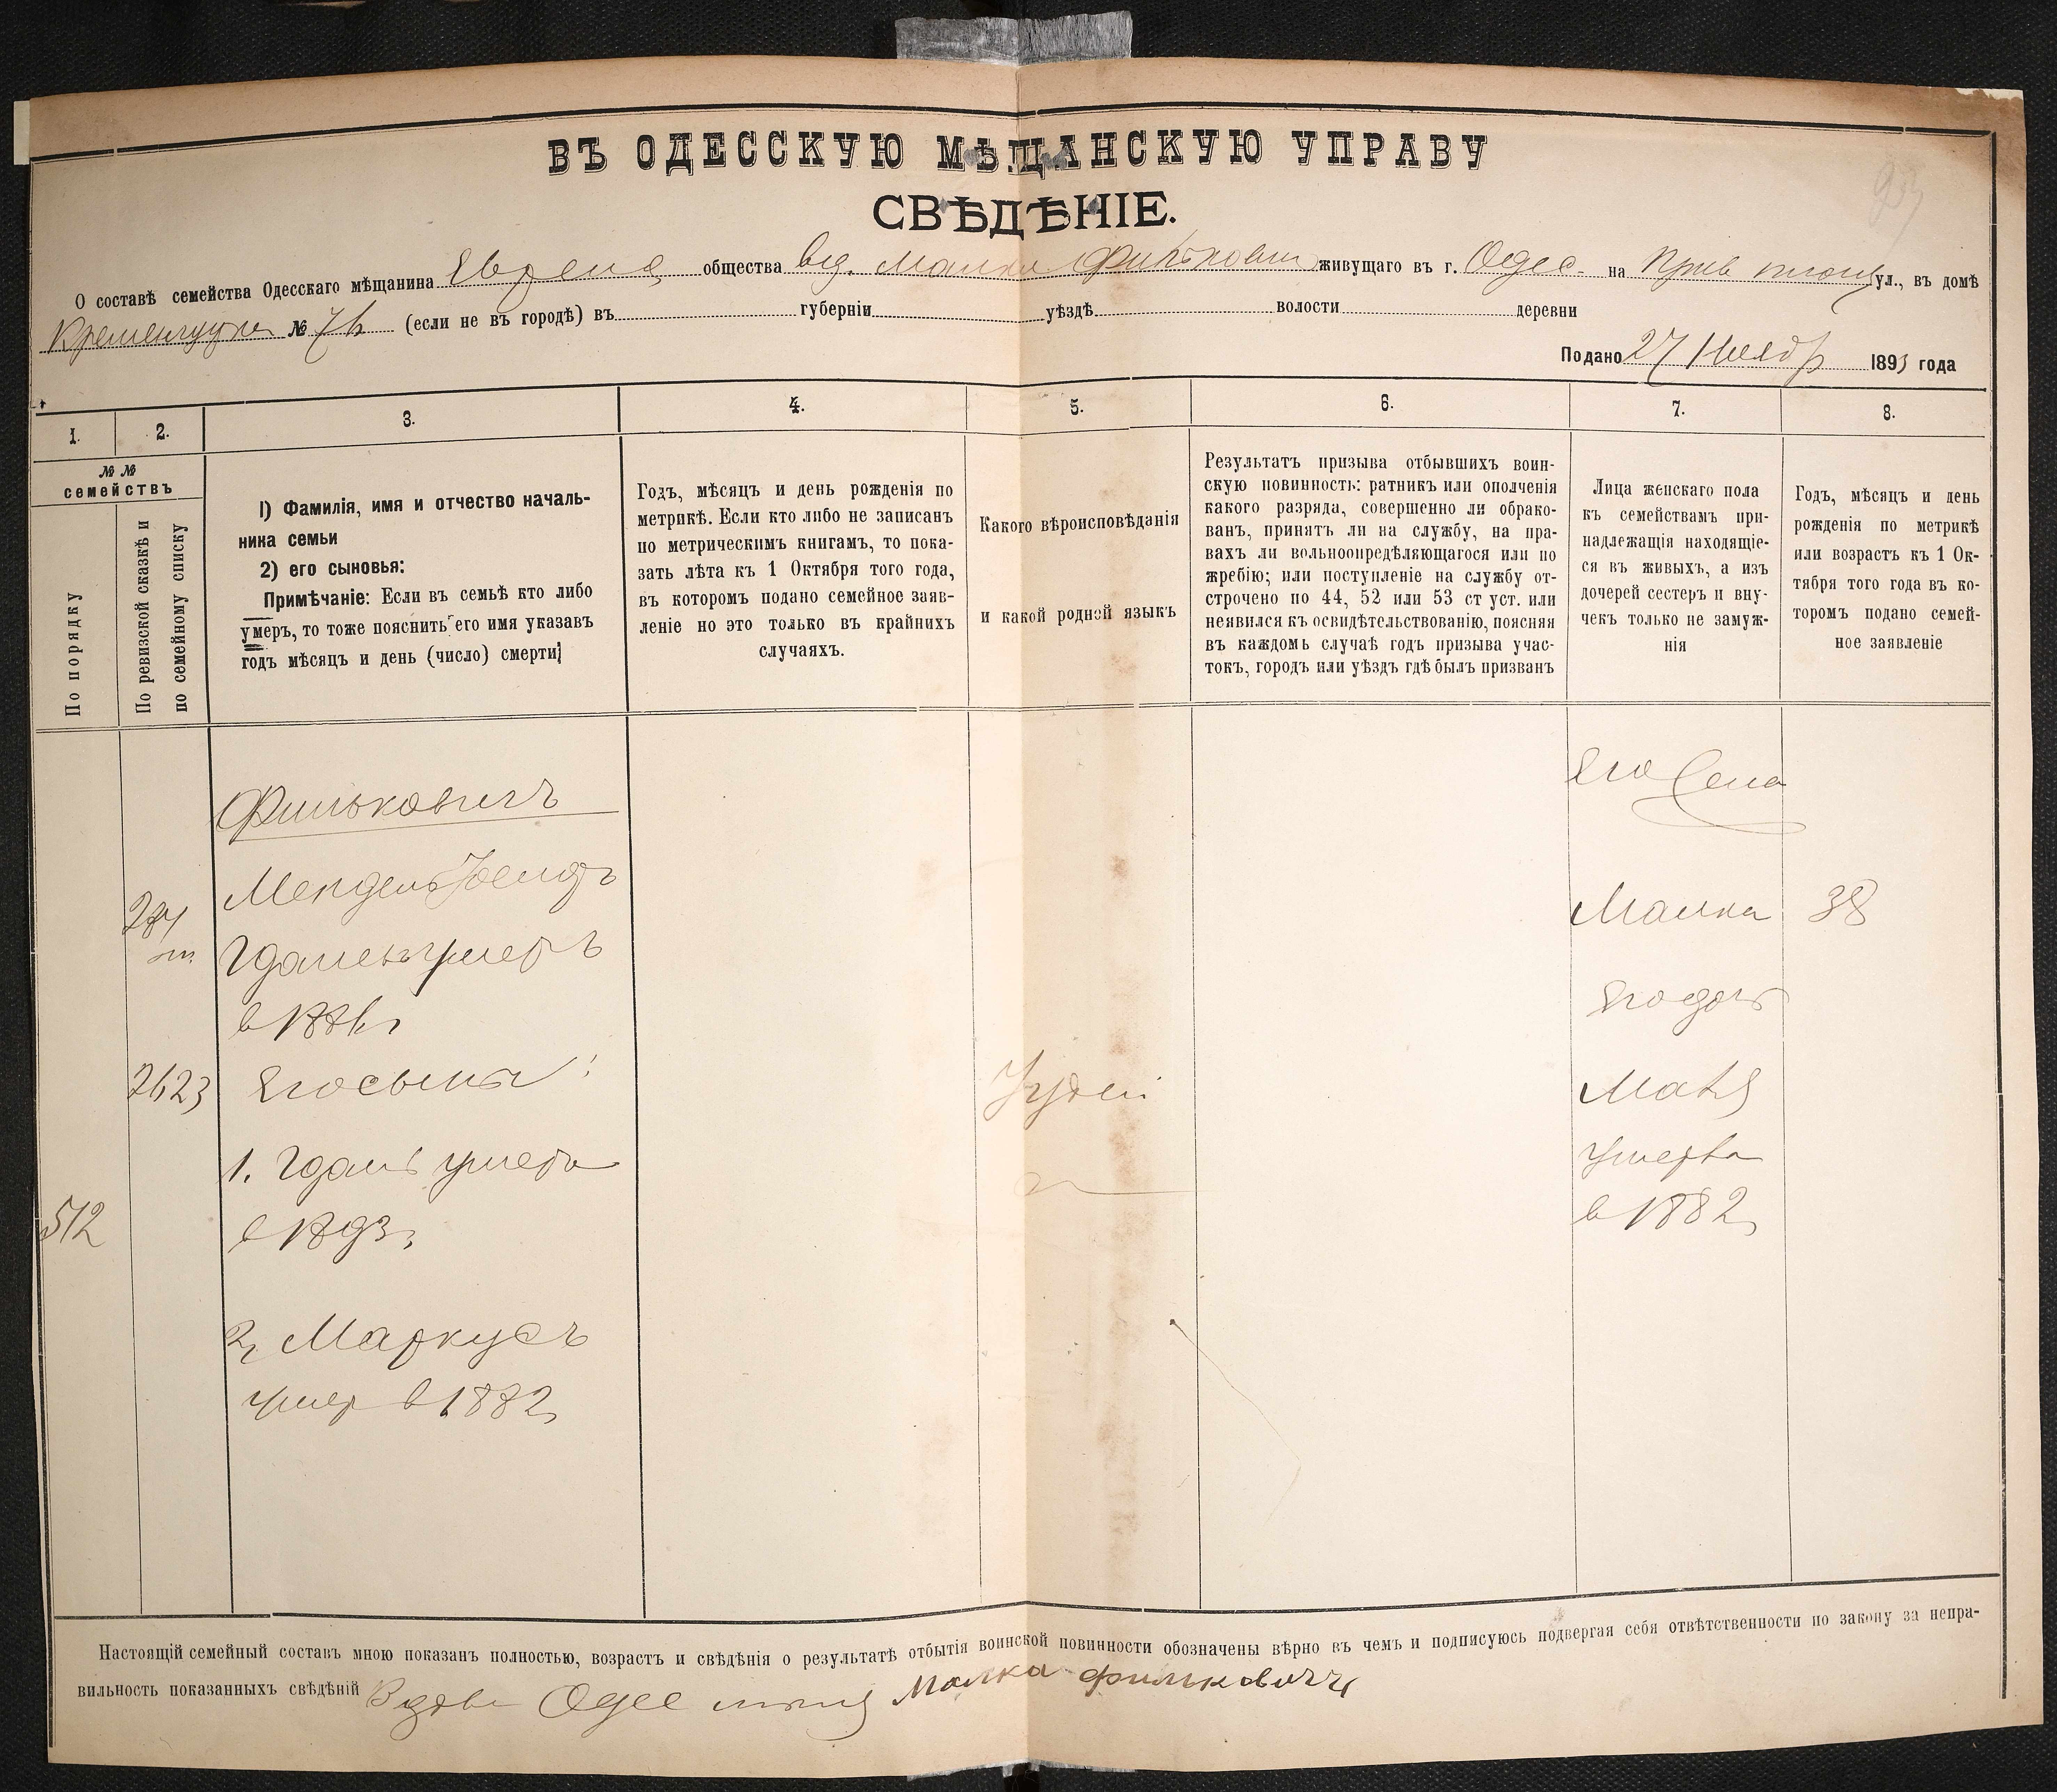 ВЪ ОДЕССКУЮ МѢЩАНСКУЮ УПРАВУ
СВѢДѢНІЕ.
О составѣ семейства Одесскаго мѣщанина Еврейск общества вд. Малки Фильковичъ живущаго въ г. Одес. на Прив площ ул., въ домѣ
№ 76 (если не въ городѣ) въ губерніи уѣздѣ волости деревни
Подано 27 Ноябр 1893 года
1. 2. 3. 4. 5. 6. 7. 8.
№ №
семействъ
По порядку
По ревизской сказкѣ и
по семейному списку
1) Фамилія, имя и отчество началь-
ника семьи
2) его сыновья:
Примѣчаніе: Если въ семьѣ кто либо
умеръ, то тоже пояснить его имя указавъ
годъ мѣсяцъ и день (число) смерти;
Годъ, мѣсяцъ и день рожденія по
метрикѣ. Если кто либо не записанъ
по метрическимъ книгамъ, то пока-
зать лѣта къ 1 Октября того года,
въ которомъ подано семейное заяв-
леніе но это только въ крайнихъ
случаяхъ.
Какого вѣроисповѣданія
и какой родной языкъ
Результатъ призыва отбывшихъ воин-
скую повинность: ратникъ или ополченія
какого разряда, совершенно ли обрако-
ванъ, принятъ ли на службу, на пра-
вахъ ли вольноопредѣляющагося или по
жребію; или поступленіе на службу от-
строчено по 44, 52 или 53 ст уст. или
неявился къ освидѣтельствованію, поясняя
въ каждомъ случаѣ годъ призыва учас-
токъ, городъ или уѣздъ гдѣ былъ призванъ
Лица женскаго пола
къ семействамъ при-
надлежащія находящіе-
ся въ живыхъ, а изъ
дочерей сестеръ и вну-
чекъ только не замуж-
нія
Годъ, мѣсяцъ и день
рожденія по метрикѣ
или возрастъ къ 1 Ок-
тября того года въ ко-
торомъ подано семей-
ное заявленіе
Фильковичъ
Мендель
умеръ
в 1886г
2623 Его сынъ:
1. Гдаль умеръ
в 1893г
512
2, Маркусъ
умер в 1882г
Іудей
Его жена
Малка 38
Его дочь
Маня
умерла
в 1882г
Настоящій семейный составъ мною показанъ полностью, возрастъ и свѣдѣнія о результатѣ отбытія воинской повинности обозначены вѣрно въ чемъ и подписуюсь подвергая себя отвѣтственности по закону за непра-
вильность показанныхъ свѣдѣній Вдова Одес Малка Фильковичъ